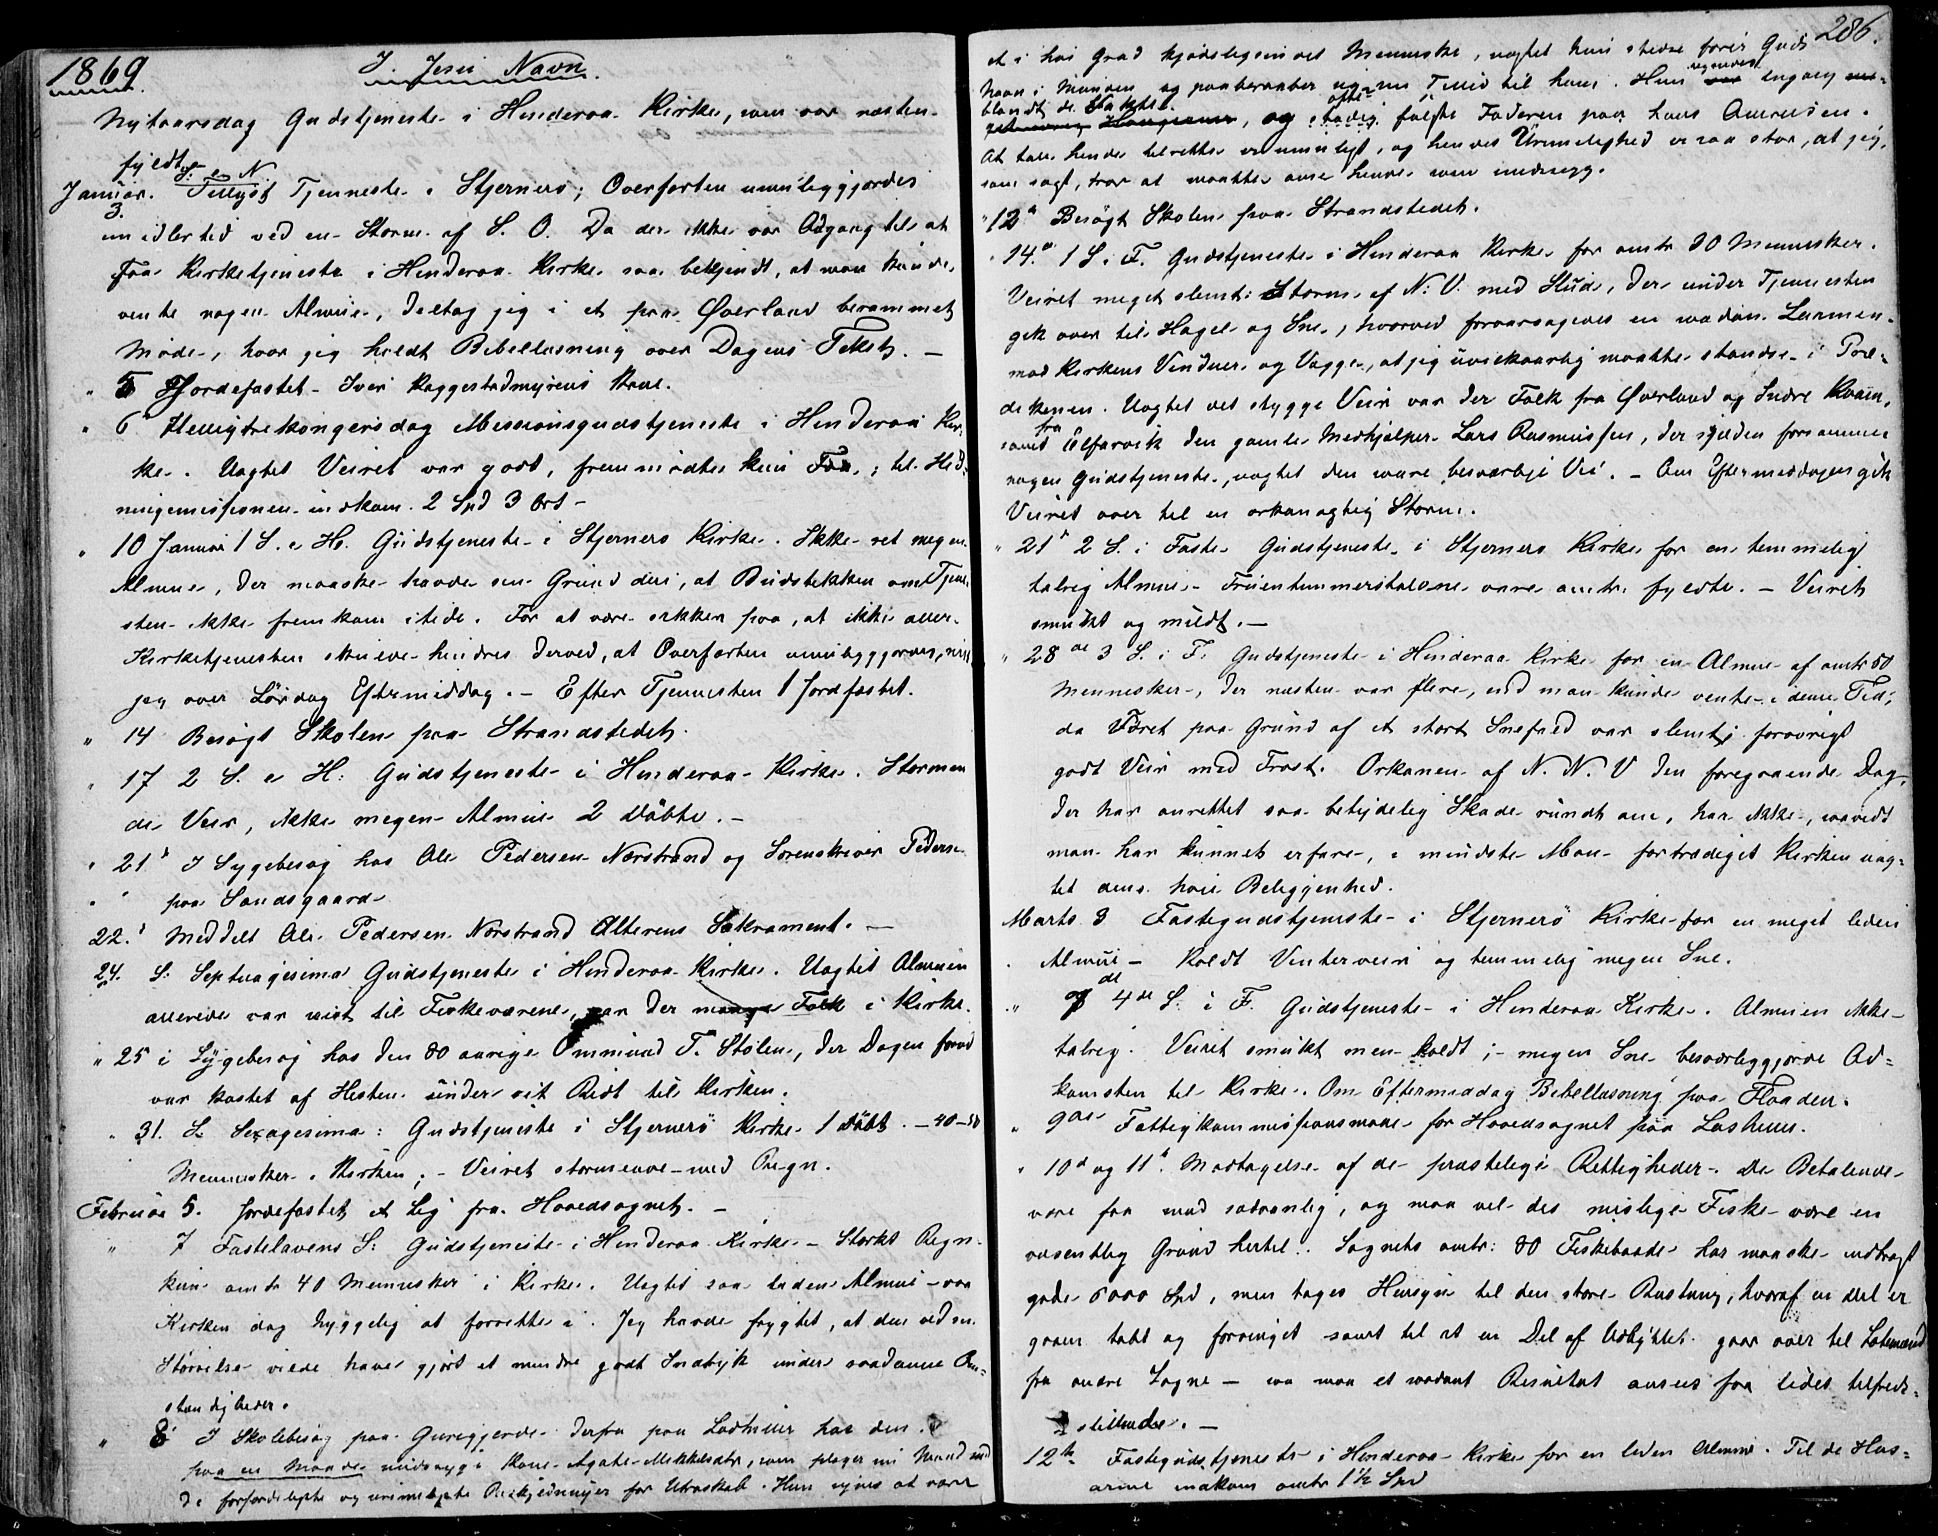 1869
I Jesu Navn.
Nytaarsdag Gudstjeneste i Hinderaa Kirke, som var næsten
fyldt.
S. e N.
Januar. Tillyst Tjenneste i Stjernerö; Overfarten umuliggjordes
3.
imidlertid ved en Storm af S. O. Da der ikke var Adgang til at
faa Kirketjeneste i Hinderaa Kirke saa bekjendt, at man kunde
vente nogen Almue, deltog jeg i et paa Øverland berammet
Møde, hvor jeg holdt Bibellæsning over Dagens Tekst. —
" 5 Jordefæstet Iver Raggestadmyrens Kone.
" 6 Helligtrekongersdag Missionsgudstjeneste i Hinderaa Kir-
ke. Uagtet Veiret var godt, fremmødte kun Faa; til Hed-
ningemissionen indkom 2 Spd 3 Ort –
" 10 Januar 1 S. e H3. Gudstjeneste i Stjernerö Kirke. Ikke ret megen
Almue, der maaske havde sin Grund deri, at Budstikken om Tjene-
sten ikke fremkom itide. For at være sikker paa, at ikke
Kirketjenesten skulde hindres derved, at Overfarten umuliggjordes,
jeg over Lördag Eftermiddag. – Efter Tjennesten 1 Jordfæstet.
" 14 Besøgt Skolen paa Strandstedet.
" 17 2 S. e H: Gudstjeneste i Hinderaa Kirke. Stormen
de Veir, ikke megen Almue 2 döbte. –
" 21 I Sygebesøg hos Ole Pedersen Nærstrand og Sorenskriver Pedersen
" paa Sandsgaard
22. Meddelt Ole Pedersen Nærstrand Alterens Sakrament. —
24. S. Septuagesima Gudstjeneste i Hinderaa Kirke. Uagtet Almuen
allerede var reist til Fiskeværene, var der mange Folk i Kirke.
" 25 i Sygebesøg hos den 80 aarige Ommund T. Stølen, der Dagen forud
var kastet af Hesten under sit Ridt til Kirken.
" 31. S. Sexagesima: Gudstjeneste i Stjernerö Kirke 1 döbt. – 40–50
Mennesker i Kirken; – Veiret stormende med Regn.
Februar 5. Jordefæstet et Lig fra Hovedsognet. –
" 7 Fastelavens S: Gudstjeneste i Hinderaa Kirke – Stærkt Regn
kun omtr 40 Mennesker i Kirke. Uagtet saa liden Almue – var
Kirken dog hyggelig at forrette i. Jeg havde frygtet, at den ved sin
Størrelse vilde have gjort et mindre godt Indtryk under saadanne Om-
stændigheder.
" 8 I Skolebesøg paa Gunsgjerde derfra paa Ladhuus hos den
paa en Maade sindssyge Kone Agate Mikkelsdtr, som plager sin Mand med
de forfærdeligste og urimeligste Beskyldninger for Utroskab. Hun synes at være
286.
et i høi Grad kjødeligsindet Menneske, uagtet hun stedse fører Guds
Navn i Munden og paaberaaber sig sin Tillid til ham. Hun regnedes engang
blandt de Vakte, og ofte stadig fulgte Faderen paa hans Omreiser.
At tale hende tilrette er umuligt, og hendes Urimelighed er saa stor, at jeg,
som sagt, tror at maatte anse hende som sindssyg.
" 12 Besøgt Skolen paa Strandstedet.
" 14. 1 S. i F. Gudstjeneste i Hinderaa Kirke for omtr 30 Mennesker.
Veiret meget slemt: Storm af N: V. med Slud, der under Tjennesten
gik over til Hagel og Sne, hvorved foraarsagedes en saadan Larmen
mod Kirkens Vinduer og Vægge, at jeg uvilkaarlig maatte standse i Præ-
dikenen. Uagtet det stygge Veir var der Folk fra Øverland og Indre Kvam,
samt fra Elfarvik den gamle Medhjælper Lars Rasmussen, der sjelden forsømmer
nogen Gudstjeneste, uagtet den svare besværlige Vei. – Om Eftermiddagen gik
Veiret over til en orkanagtig Storm.
" 21 2 S. i Faste Gudstjeneste i Stjernerö Kirke for en temmelig
talrig Almue – Fruentimmerstolene vare omtr. fyldte. – Veiret
smukt og mildt. —
" 28de 3 S. i F. Gudstjeneste i Hinderaa Kirke for en Almue af omtr 50
Mennesker, der næsten var flere, end man kunde vente i denne Tid,
da Føret paa Grund af et stort Snefald var slemt; forøvrigt
godt Veir med Frost. Orkanen af N. N. V den foregaaende Dag,
der har anrettet saa betydelig Skade rundt om, har ikke, saavidt
man har kunnet erfare, i mindste Mon fortrædiget Kirken uag-
tet dens høie Beliggenhed.
Marts 3 Fastegudstjeneste i Stjernerö Kirke for en meget liden
Almue – Koldt Vinterveir og temmelig megen Sne.
" 7 de 4de S. i F. Gudstjeneste i Hinderaa Kirke. Almuen ikke
talrig. Veiret smukt men koldt; – megen Sne besværliggjorde Ad-
komsten til Kirke. Om Eftermiddag Bibellæsning paa Flaaden.
" 9de Fattigkommissionsmøde for Hovedsognet paa Lashuus.
" 10 og 11 Modtagelse af de præstelige Rettigheder. De Betalende
vare faa mod sædvanlig, og maa vel det mislige Fiske være en
væsentlig Grund hertil. Sognets omtr: 80 Fiskebaade har maaske indbragt
gode 5000 Spd, men tages Hensyn til den store Rustning, hvoraf en Del er
gaaen tabt og forringet samt til at en Del af Udbyttet gaar over til Lotsmænd
fra andre Sogne – saa maa et saadant Resultat ansees for lidet tilfreds-
stillende. —
12te Fastegudstjeneste i Hinderaa Kirke for en liden Almue. Til de Hus-
arme indkom omtr 1½ Spd